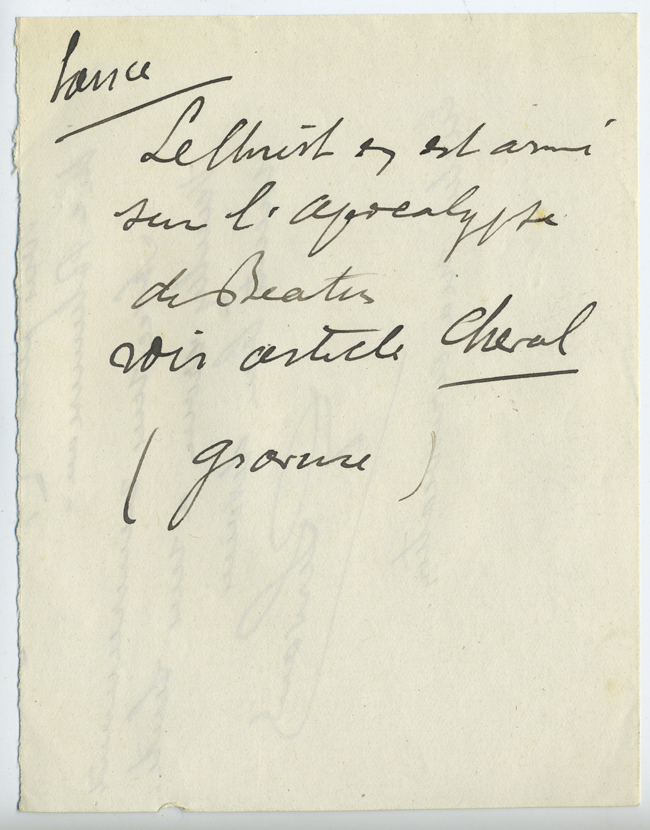 Lance
Le Christ en est armé
sur l'apocalypse
de Beatus
voir article Cheval
(gravure)